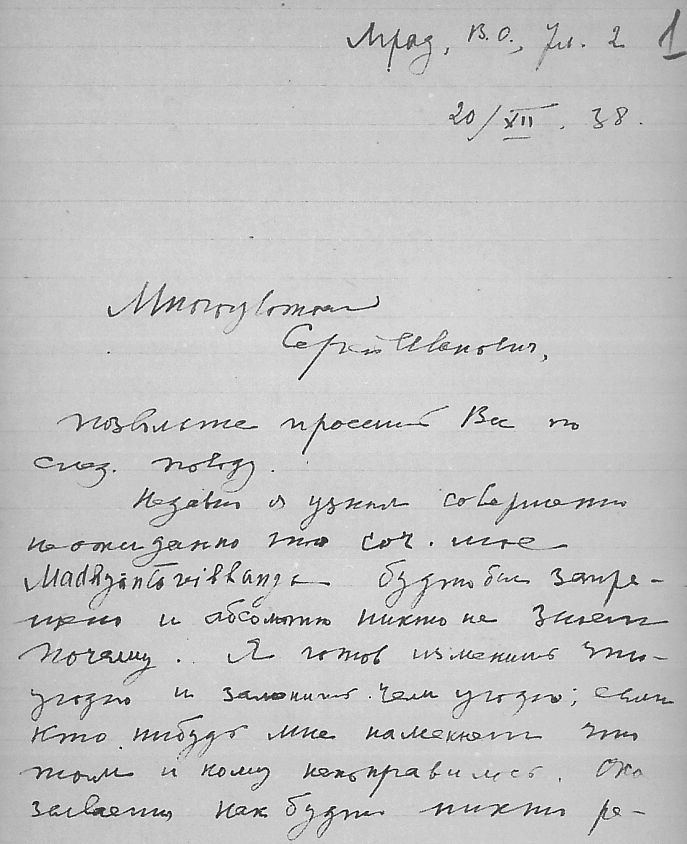 Лград, В.О., 7 л. 2 1
20/XII. 38.
Многоуважаем
Сергей Иванович,
позвольте просить Вас по
след. поводу.
Недавно я узнал совершенно
неожиданно что соч. мое
Madhyāntavibhanga будто бы запре-
щено и абсолютно никто не знает
почему. Я готов изменить что
угодно и заменить чем угодно; если
кто нибудь мне намекнет что
там и кому непонравилось. Ока
зывается как будто никто ре-